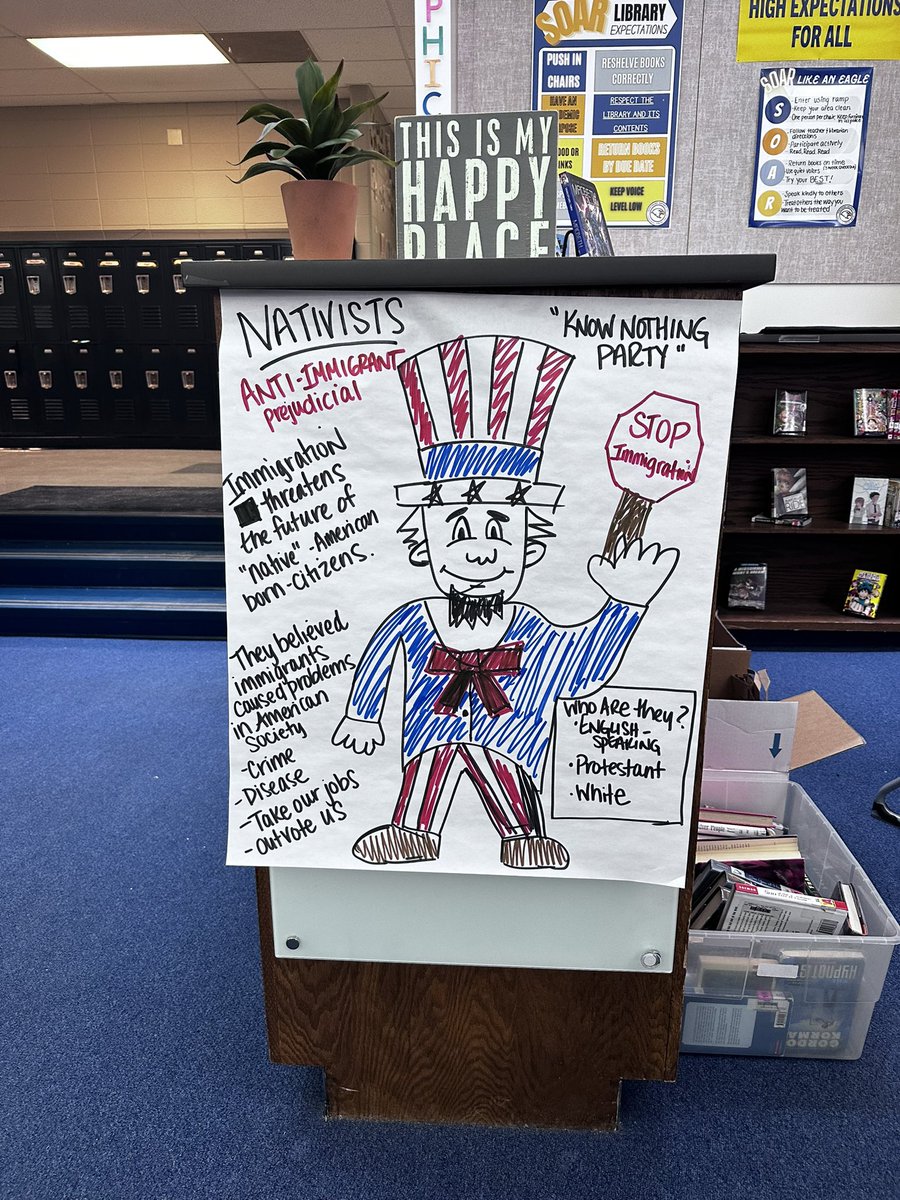 PHIC
SOAR LIBRARY
EXPECTATIONS
PUSH IN
CHAIRS
RESHELVE BOOKS
CORRECTLY
RESPECT THE
LIBRARY AND ITS
CONTENTS
RETURN BOOKS
BY DUE DATE
KEEP VOICE
LEVEL LOW
HAVE AN
OOD OR
HIGH EXPECTATIONS
FOR ALL
SOAR LIKE AN EAGLE
S
Enter using ramp
Keep your area clean
One person per chair
O
Follow teacher & librarian
directions
Participate actively
Read, Read, Read
A
Return books on time
Use quiet voices
Try your BEST!
R
Speak kindly to others
Treat others the way you
want to be treated
THIS IS MY
HAPPY
PLACE
NATIVISTS
ANTI-IMMIGRANT
Prejudicial
"KNOW NOTHING
PARTY"
STOP
Immigration
Immigration
threatens
the future of
"native"-American
born-citizens.
They believed
immigrants
caused problems
in American
society
- Crime
- Disease
- Take our jobs
- Outvote us
Who Are they?
• ENGLISH-
SPEAKING
• Protestant
• White
HYPNOT
GORDO
KORMA